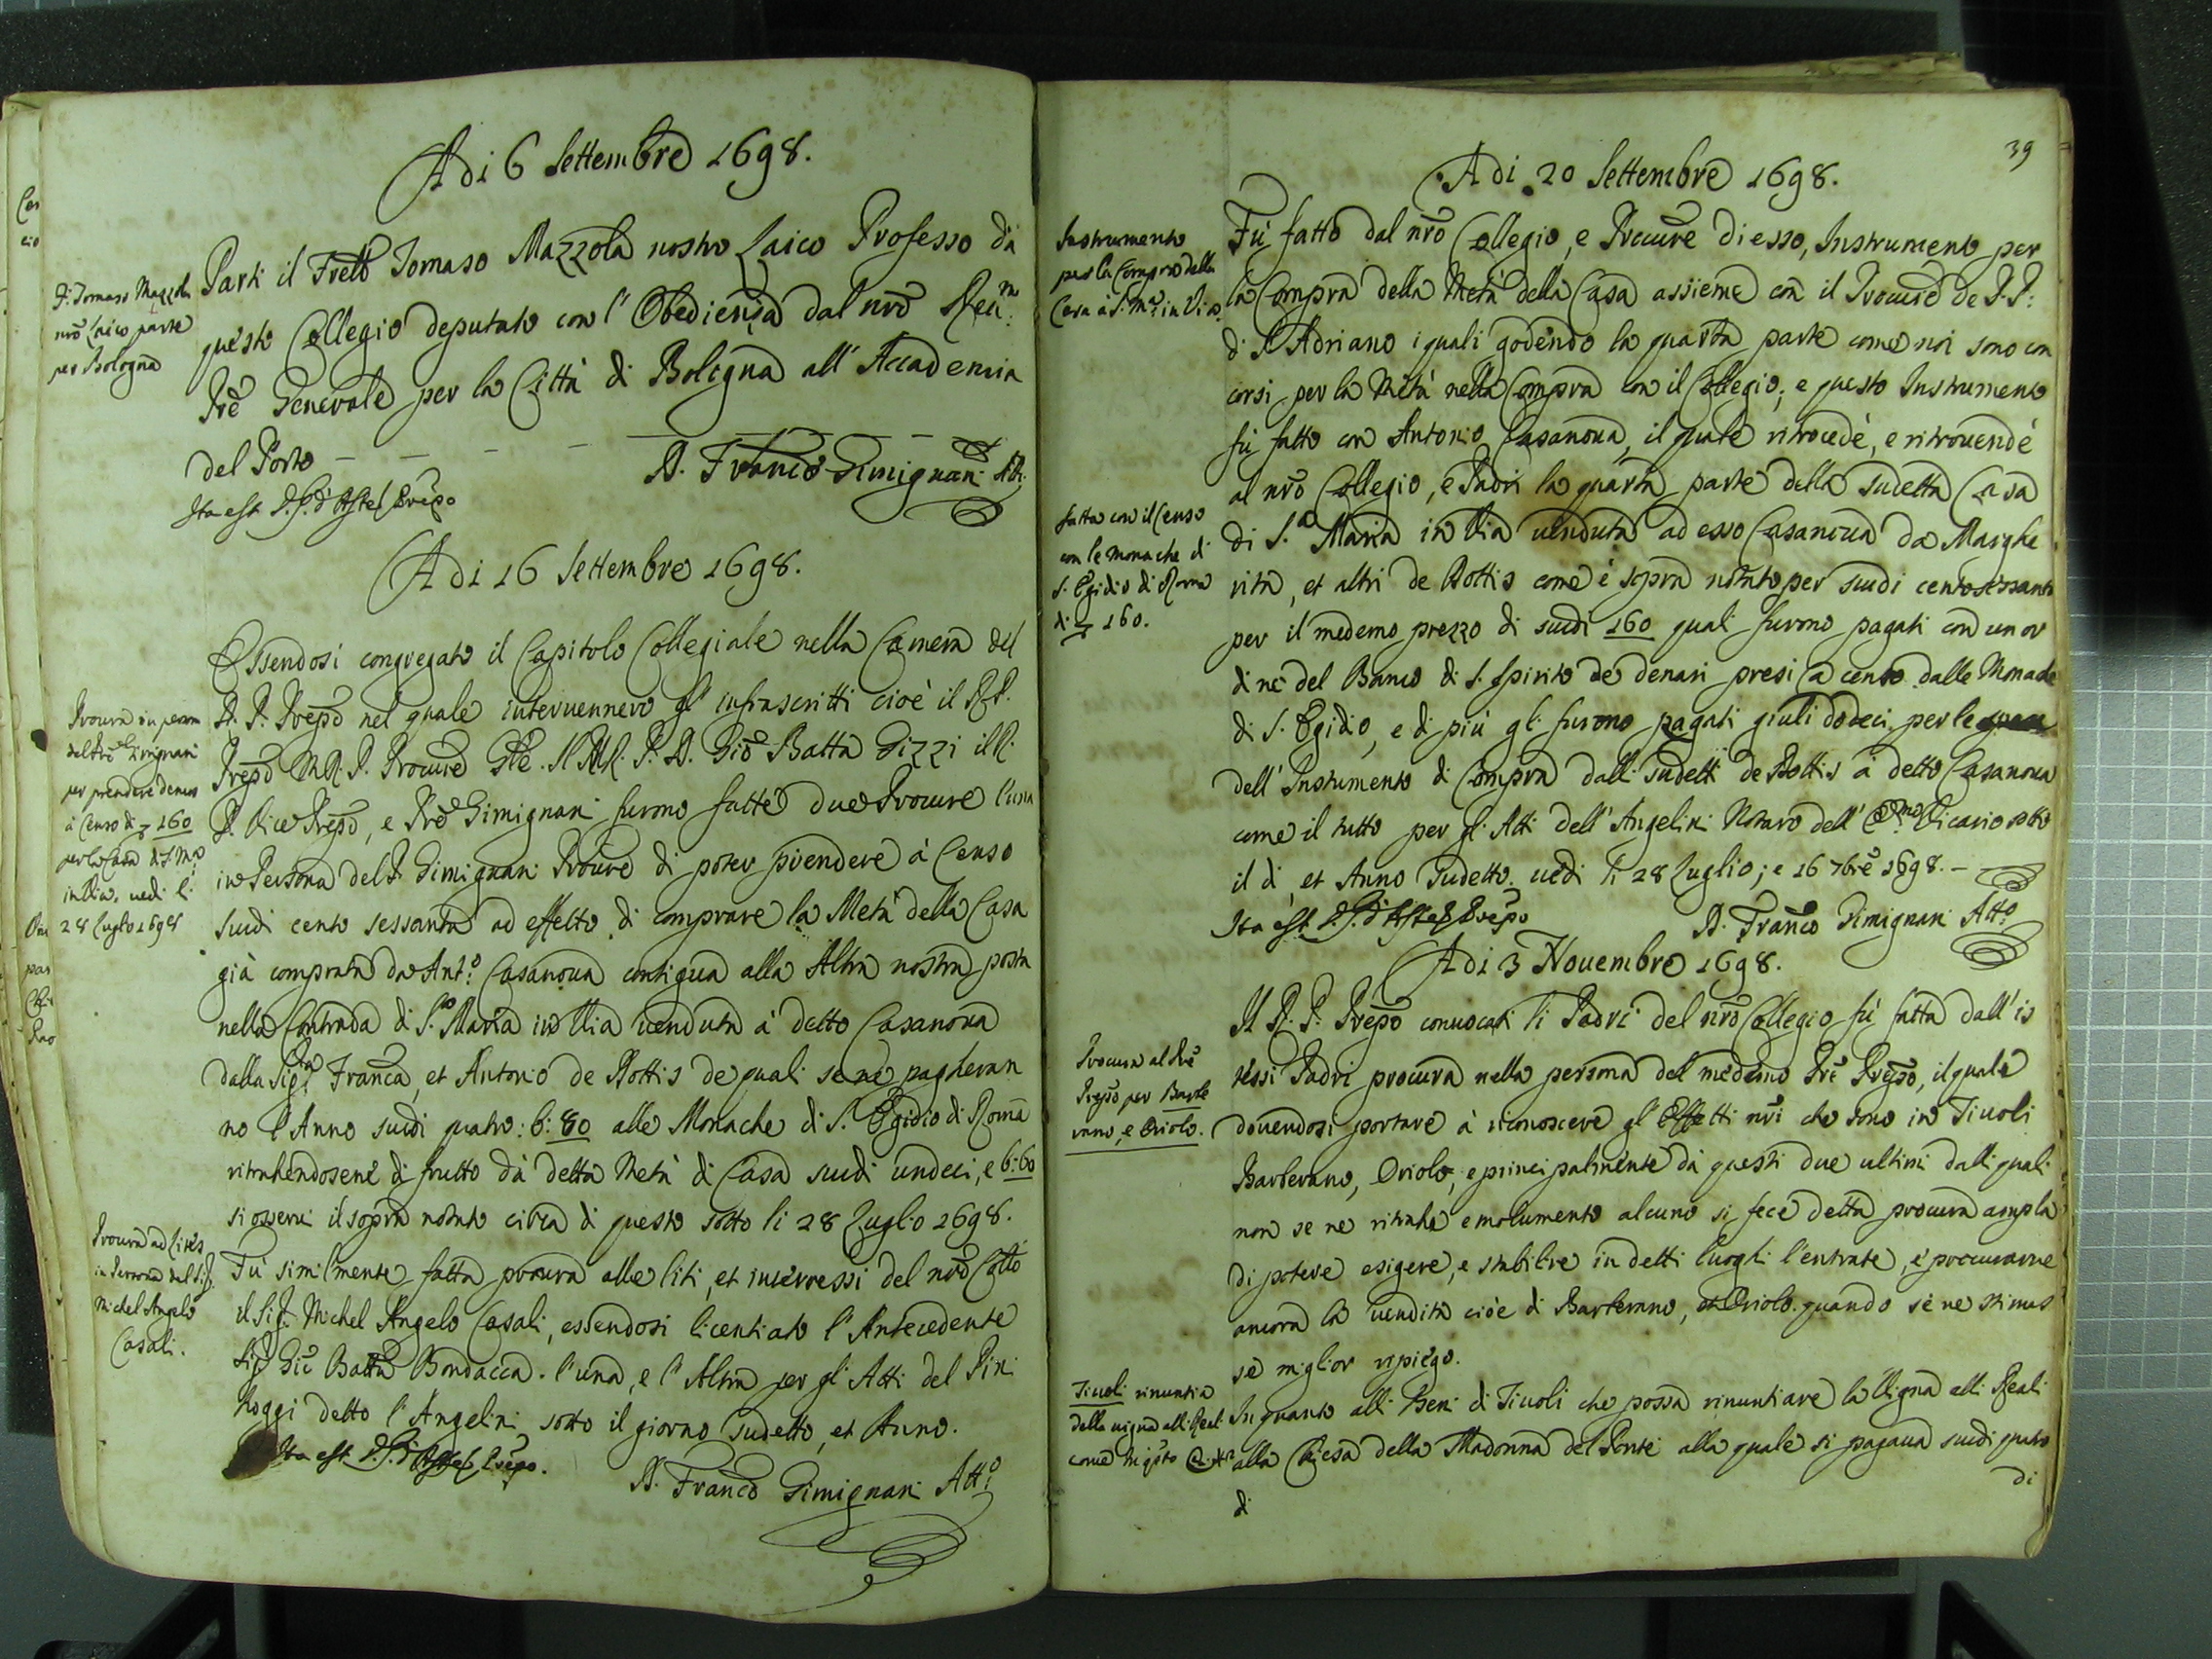 A di 6 Settembre 1698.
F. Tomaso Mazzola
nrõ Laico parte
per Bologna
Parti il Fretto Tomaso Mazzola nostro Laico Professo dà
questo Collegio deputato con l'Obedienza dal nrõ Reu.m
Prẽ Generale per la Città di Bologna all'Accademia
del Porto
D. Franco Gimignani Att.
Ita est Prẽpo
A di 16 Settembre 1698.
Procura in persona
del Prẽ Gimignani
per prendere denari
à Censo di 160
per la Casa di S. M.a
in Via. uedi li
28 Luglio 1698
Essendosi congregato il Capitolo Collegiale nella Camera del
R. P. Prepõ nel quale interuennero gl'infrascritti cioè il R. P.
Prepõ M. R. P. Procurẽ Gle. Il M. R. P. D. Giõ Batta Gizzi il R.
P. Vice Prepõ, e Prẽ Gimignani furono fatte due Procure l'una
in Persona del P. Gimignani Procurẽ di poter prendere à Censo
scudi cento sessanta ad effetto di comprare la Metà della Casa
già comprata da Ant.o Casanoua contigua alla Altra nostra posta
nella Contrada di S.a Maria in Via uenduta à detto Casanoua
dalla Sig.ra Franca, et Antonio de Rottis de quali se ne pagheran
no l'Anno scudi quatro: b: 80 alle Monache di S. Egidio di Roma
ritrahendosene di frutto dà detta Metà di Casa scudi undeci, e b: 60
si osserui il sopra notato circa di questo sotto li 28 Luglio 1698.
Procura ad Lites
in Persona del Sig.
Michel Angelo
Casali.
Fù similmente fatta procura alle liti, et interressi del nrõ Collo
il Sig. Michel Angelo Casali, essendosi licentiato l'Antecedente
Sig. Giõ Batta Bondacca. l'una, e l'Altra per gl'Atti del Pini
hoggi detto l'Angelini sotto il giorno sudetto, et Anno.
Ita est Prẽpo.
D. Franco Gimignani Att.o
39
A di 20 Settembre 1698.
Instrumento
per la Compra della
Casa à S. M.a in Via.
Fù fatto dal nrõ Collegio, e Procurẽ di esso, Instrumento per
la Compra della Metà della Casa assieme con il Procurẽ de P.P:
di S. Adriano i quali godendo la quarta parte come noi sono con
corsi per la Metà nella Compra con il Collegio; e questo Instrumento
fù fatto con Antonio Casanoua, il quale ritrocedè, e ritrouendè
al nrõ Collegio, e Padri la quarta parte della sudetta Casa
fatta con il Censo
con le monache di
S. Egidio di Roma
di 160.
di S.a Maria in Via uenduta ad esso Casanoua da Marghe
rita, et altri de Rottis come è sopra notato per scudi centosessanta
per il medemo prezzo di scudi 160 quali furono pagati con un or
dine del Banco di S. Spirito de denari presi a censo dalle Monache
di S. Egidio, e di più gli furono pagati giuli dodeci per le
dell'Instrumento di Compra dalli sudetti de Rottis à detto Casanoua
come il tutto per gli Atti dell'Angelini Notaro dell' Vicario sotto
il dì et Anno sudetto. uedi li 28 Luglio; e 16 7brẽ 1698.
Ita est Prẽpo
D. Franco Gimignani Att.o
A di 3 Nouembre 1698.
Procura al Prẽ
Prepõ per Barbe
rano, e Oriolo.
Il R. P. Prepõ conuocati li Padri del nrõ Collegio fù fatta dall'is
tessi Padri procura nella persona del medemo Prẽ Prepõ, il quale
douendosi portare à riconoscere gl'Effetti nrĩ che sono in Tiuoli
Barberano, Oriolo, e principalmente dà questi due ultimi dalli quali
non se ne ritrahe emolumento alcuno si fece detta procura ampla
di potere esigere, e stabilire in detti luoghi l'entrate, e procurarne
ancora la uendita cioè di Barberano, et Oriolo quando se ne stimas
se miglior ripiego.
Tiuoli rinuntia
della uigna alli Reali
come
In quanto alli Beni di Tiuoli che possa rinuntiare la Vigna alli Reali
alla Chiesa della Madonna del Ponte alla quale si pagaua scudi quatro
di
di